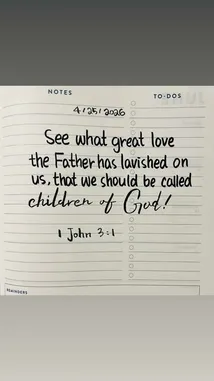 NOTES
TO-DOS
4/25/2026
See what great love
the Father has lavished on
us, that we should be called
children of God!
1 John 3:1
REMINDERS